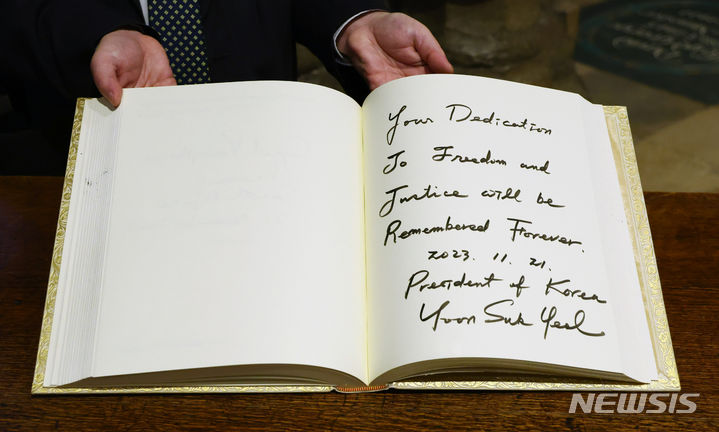 Your Dedication
To Freedom and
Justice will be
Remembered Forever.
2023. 11. 21.
President of Korea
Yoon Suk Yeol
NEWSIS